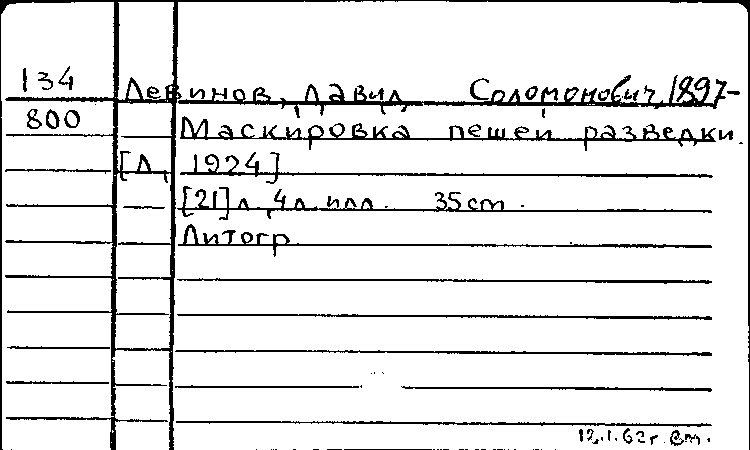 134
Левинов, Давид Соломонович, 1897-
800
Маскировка пешей разведки.
[Л, 1924]
[21] л, 4 л илл. 35 cm.
Литогр.
12.1.62г.